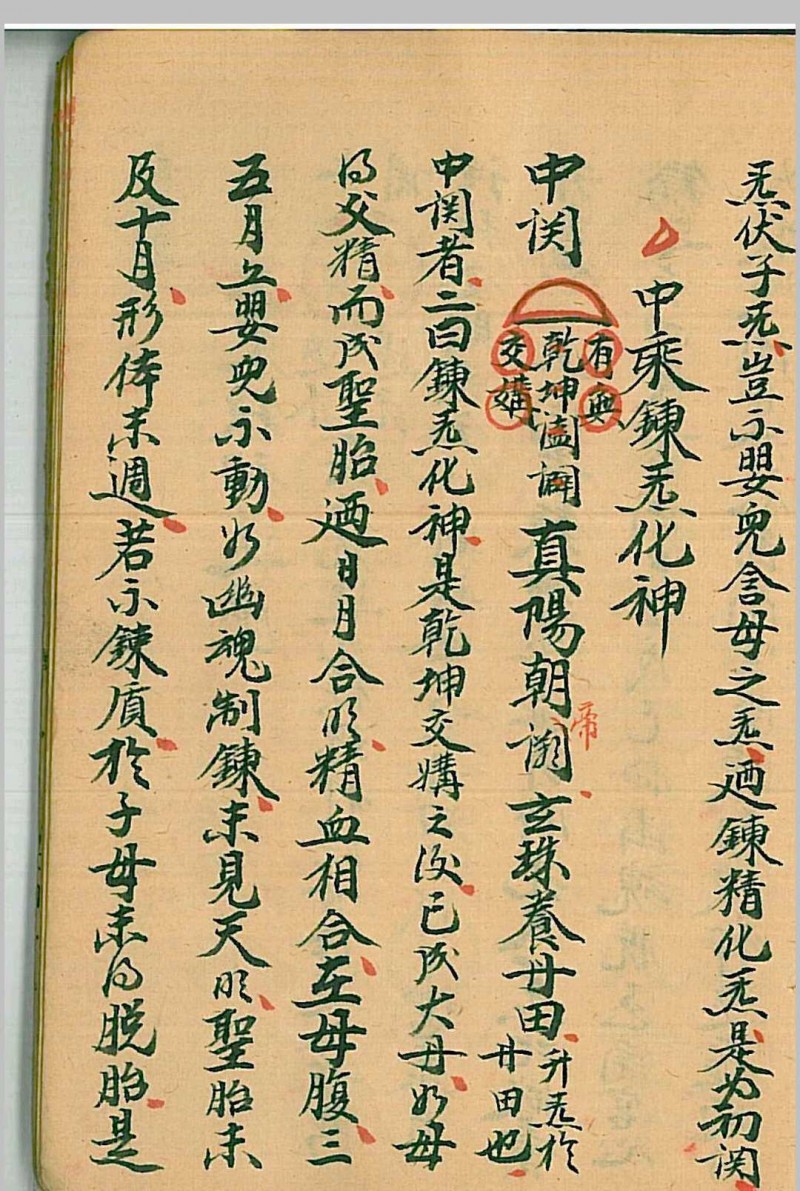 炁伏子炁豈不嬰兒含母之炁廼鍊精化炁是為初関
中乘鍊炁化神
中関
有無
乾坤闔闢
交媾
真陽朝
帝
玄珠養丹田
升炁於
丹田也
中関者二曰鍊炁化神是乾坤交媾之後已成大丹如母
得父精而成聖胎廼日月合明精血相合在母腹三
五月之嬰兒不動如幽魂制鍊未見天明聖胎未
及十月形体未週若不鍊質於子母未得脱胎是